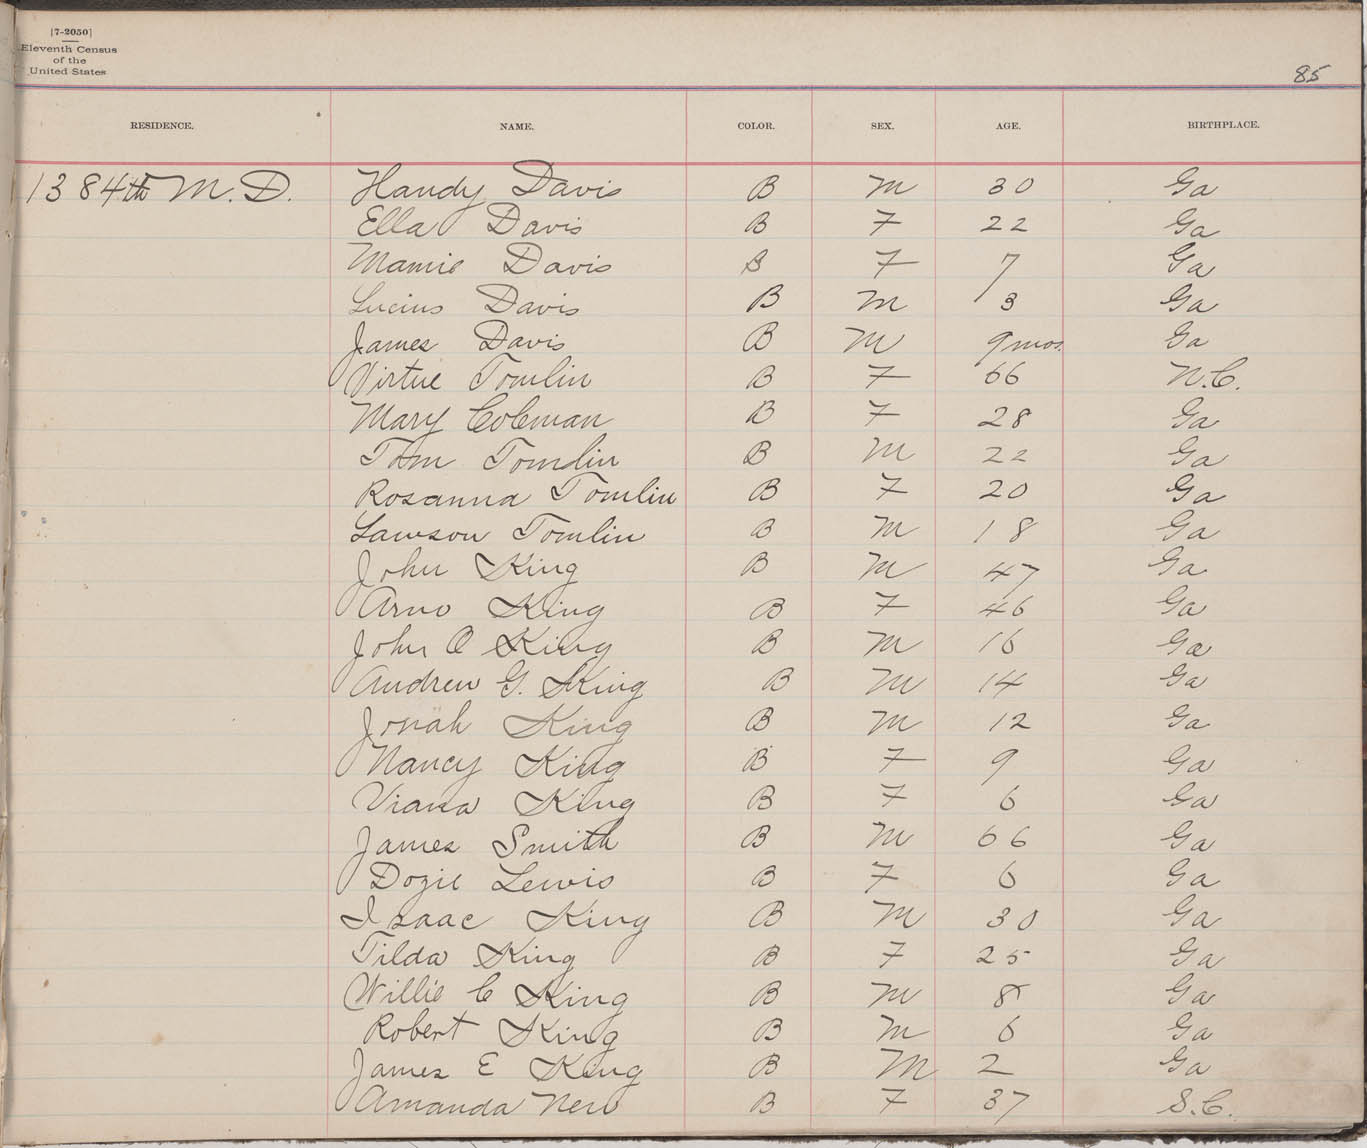 [7-2050]
Eleventh Census
of the
United States
85
RESIDENCE. NAME. COLOR. SEX. AGE. BIRTHPLACE.
1384th M.D. Handy Davis B M 30 Ga
Ella Davis B F 22 Ga
Mamie Davis B F 7 Ga
Lucius Davis B M 3 Ga
James Davis B M 9mos. Ga
Virtue Tomlin B F 66 N.C.
Mary Coleman B F 28 Ga
Tom Tomlin B M 22 Ga
Rosanna Tomlin B F 20 Ga
Lawson Tomlin B M 18 Ga
John King B M 47 Ga
Arno King B F 46 Ga
John O King B M 16 Ga
Andrew G. King B M 14 Ga
Jonah King B M 12 Ga
Nancy King B F 9 Ga
Viana King B F 6 Ga
James Smith B M 66 Ga
Dozie Lewis B F 6 Ga
Isaac King B M 30 Ga
Tilda King B F 25 Ga
Willie C King B M 8 Ga
Robert King B M 6 Ga
James E King B M 2 Ga
Amanda New B F 37 S.C.